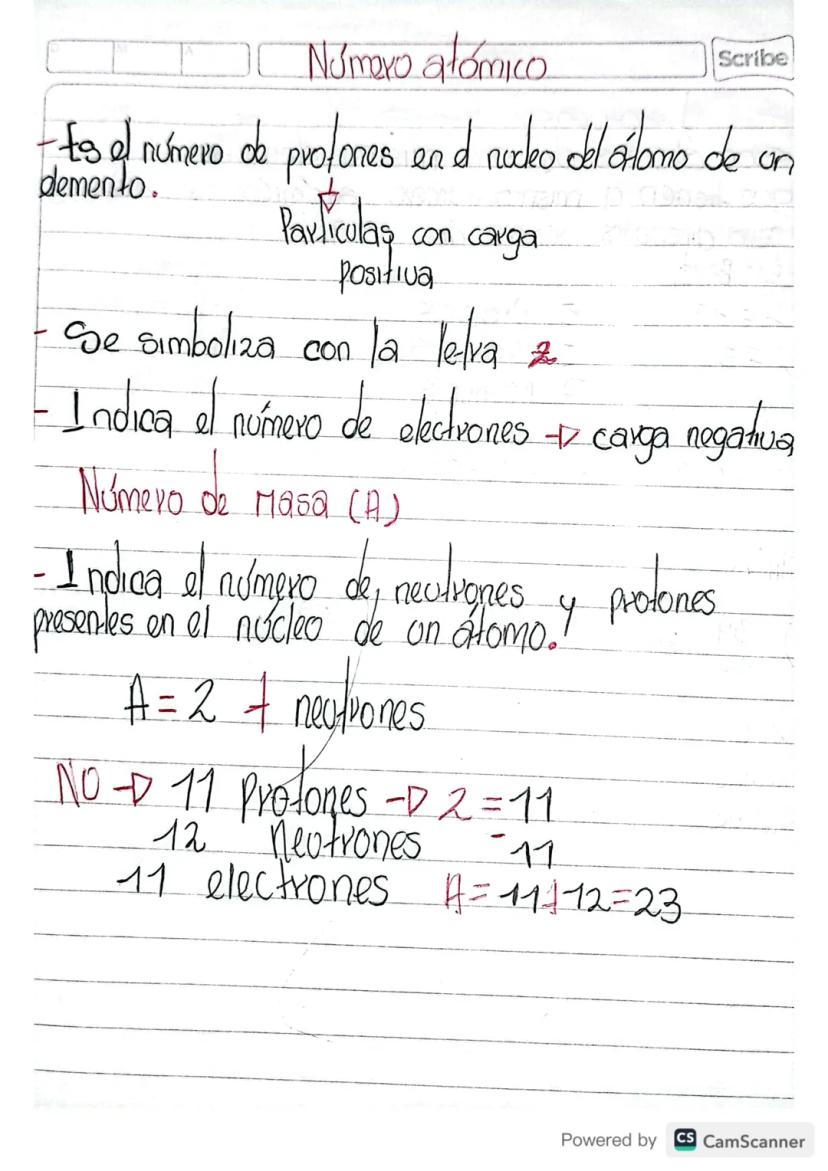 Número atómico
Scribe
- Es el número de protones en el nucleo del átomo de un
elemento.
Particulas con carga
positiva
- Se simboliza con la letra z
- Indica el número de electrones → carga negativa
Número de Masa (A)
- Indica el número de neutrones y protones
presentes en el núcleo de un átomo.
A = 2 + neutrones
NO → 11 Protones → 2 = 11
12 Neutrones - 11
11 electrones A = 11 + 12 = 23
Powered by CS CamScanner